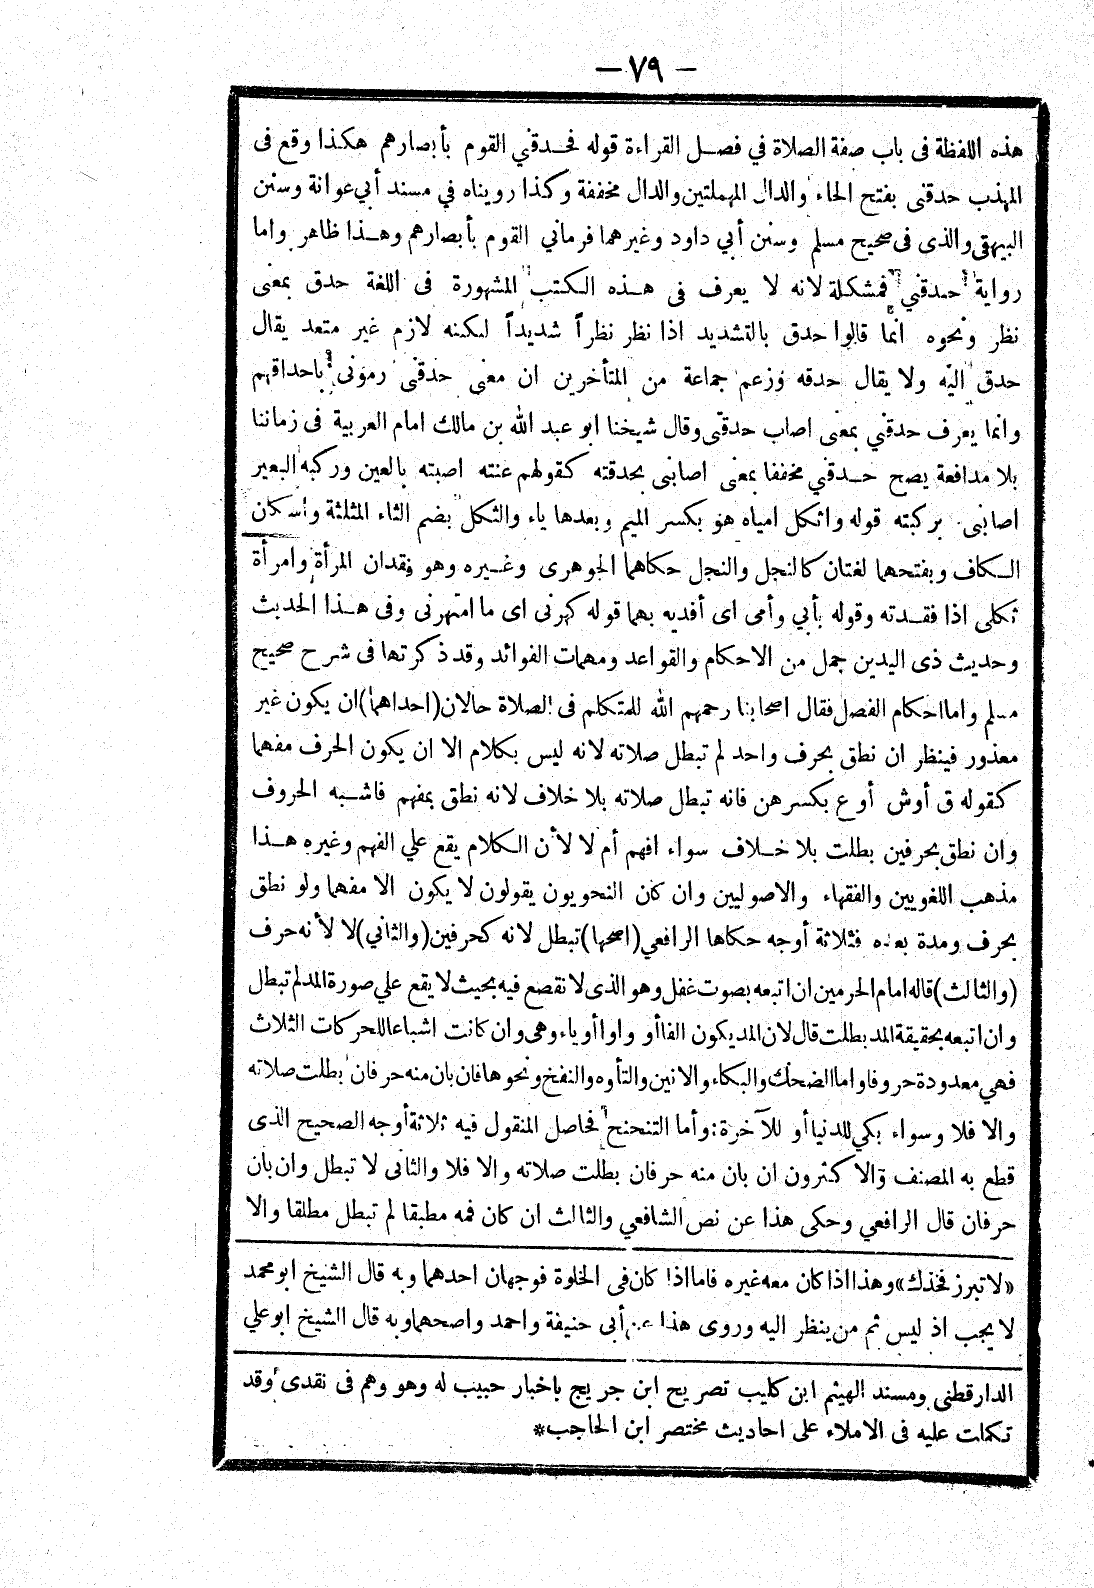 — ٧٩ —
هذه اللفظة فى باب صفة الصلاة في فصل القراءة قوله فحدقني القوم بأبصارهم هكذا وقع فى
المهذب حدقنى بفتح الحاء والدال المهملتين والدال مخففة وكذا رويناه في مسند أبي عوانة وسنن
البيهقى والذى فى صحيح مسلم وسنن أبي داود وغيرهما فرماني القوم بأبصارهم وهذا ظاهر واما
رواية حدقني فمشكلة لانه لا يعرف فى هذه الكتب المشهورة فى اللغة حدق بمعنى
نظر ونحوه انما قالوا حدق بالتشديد اذا نظر نظراً شديداً لكنه لازم غير متعد يقال
حدق اليه ولا يقال حدقه وزعم جماعة من المتأخرين ان معنى حدقنى رمونى باحداقهم
وانما يعرف حدقني بمعنى اصاب حدقتى وقال شيخنا ابو عبد الله بن مالك امام العربية فى زماننا
بلا مدافعة يصح حدقني مخففا بمعنى اصابنى بحدقته كقولهم عنته اصبته بالعين وركبه البعير
اصابنى بركبته قوله واثكل امياه هو بكسر الميم وبعدها ياء والثكل بضم الثاء المثلثة واسكان
الكاف وبفتحهما لغتان كالنجل والنجل حكاهما الجوهرى وغيره وهو فقدان المرأة وامرأة
ثكلى اذا فقدته وقوله بأبي وأمى اى أفديه بهما قوله كهرنى اى ما انتهرنى وفى هذا الحديث
وحديث ذى اليدين جمل من الاحكام والقواعد ومهمات الفوائد وقد ذكرتها فى شرح صحيح
مسلم واما احكام الفصل فقال اصحابنا رحمهم الله للمتكلم فى الصلاة حالان (احداهما) ان يكون غير
معذور فينظر ان نطق بحرف واحد لم تبطل صلاته لانه ليس بكلام الا ان يكون الحرف مفهما
كقوله ق أوش أو ع بكسرهن فانه تبطل صلاته بلا خلاف لانه نطق بمفهم فاشبه الحروف
وان نطق بحرفين بطلت بلا خلاف سواء افهم أم لا لأن الكلام يقع علي الفهم وغيره هذا
مذهب اللغويين والفقهاء والاصوليين وان كان النحويون يقولون لا يكون الا مفهما ولو نطق
بحرف ومدة بعده فثلاثة أوجه حكاها الرافعي (اصحها) تبطل لانه كحرفين (والثاني) لا لأنه حرف
(والثالث) قاله امام الحرمين ان اتبعه بصوت غفل وهو الذى لا نقصع فيه بحيث لا يقع علي صورة المد لم تبطل
وان اتبعه بحقيقة المد بطلت قال لان المد يكون الفا أو واوا أو ياء وهى وان كانت اشباعا للحركات الثلاث
فهي معدودة حروفا واما الضحك والبكاء والانين والتأوه والنفخ ونحوها فان بان منه حرفان بطلت صلاته
والا فلا وسواء بكي للدنيا أو للآخرة: وأما التنحنح فحاصل المنقول فيه ثلاثة أوجه الصحيح الذى
قطع به المصنف والاكثرون ان بان منه حرفان بطلت صلاته والا فلا والثانى لا تبطل وان بان
حرفان قال الرافعي وحكى هذا عن نص الشافعي والثالث ان كان فمه مطبقا لم تبطل مطلقا والا
«لا تبرز فخذك» وهذا اذا كان معه غيره فاما اذا كان فى الخلوة فوجهان احدهما وبه قال الشيخ ابو محمد
لا يجب اذ ليس ثم من ينظر اليه وروى هذا عن أبى حنيفة واحمد واصحهما وبه قال الشيخ ابو علي
الدارقطنى ومسند الهيثم ابن كليب تصريح ابن جريج باخبار حبيب له وهو وهم فى نقدى وقد
تكلمت عليه فى الاملاء على احاديث مختصر ابن الحاجب*